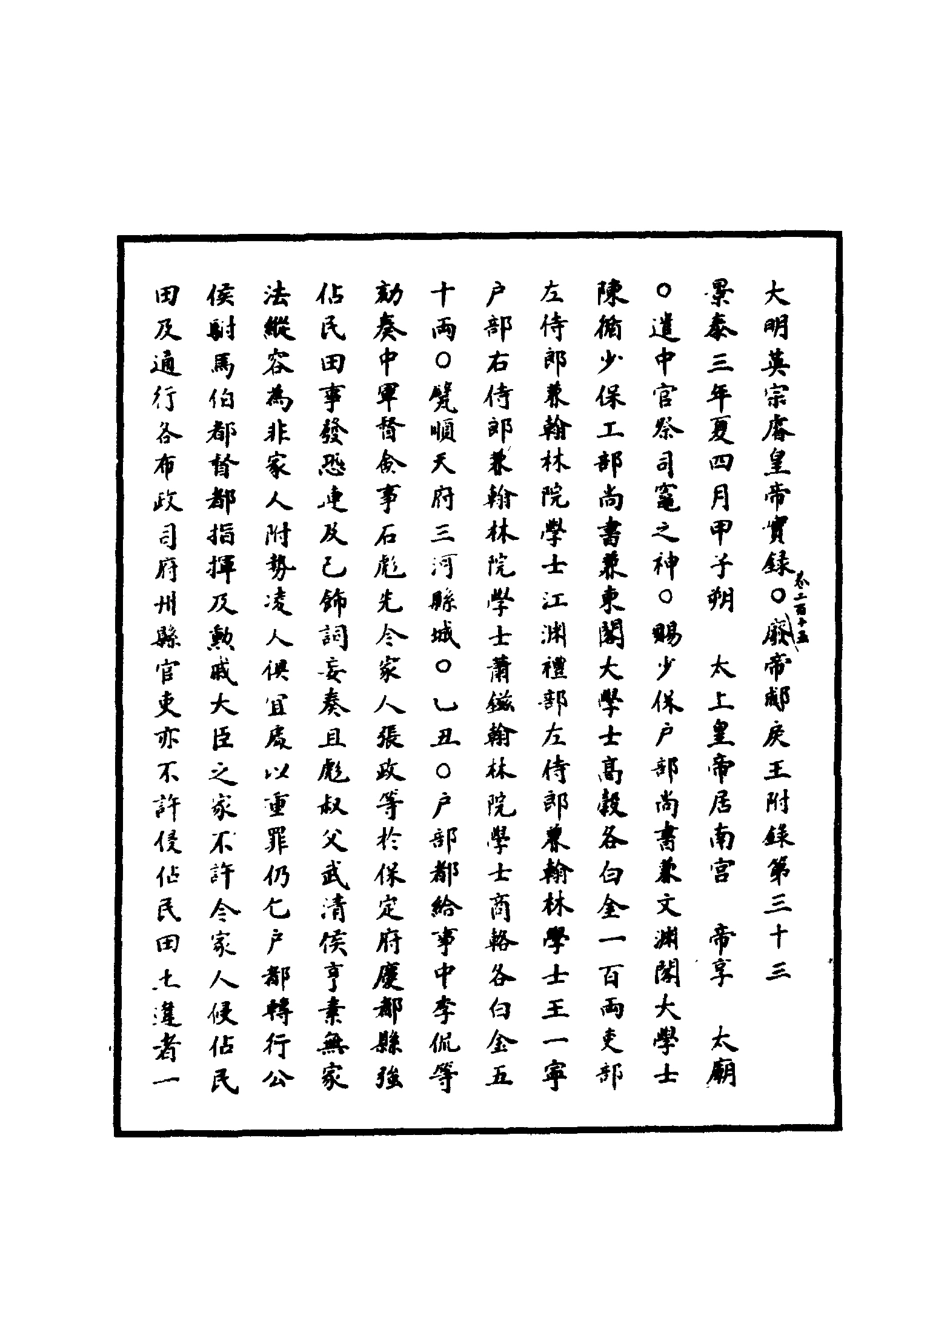 大明英宗睿皇帝實錄〇廢帝郕戾王附錄第三十三
卷二百十五
景泰三年夏四月甲子朔　太上皇帝居南宮　帝享　太廟
〇遣中官祭司竈之神〇賜少保户部尚書兼文渊閣大學士
陳循少保工部尚書兼東閣大學士高穀各白金一百兩吏部
左侍郎兼翰林院學士江渊禮部左侍郎兼翰林學士王一寧
户部右侍郎兼翰林院學士蕭鎡翰林院學士商輅各白金五
十兩〇甓順天府三河縣城〇乙丑〇户部都給事中李侃等
劾奏中軍督僉事石彪先令家人張政等於保定府慶都縣強
佔民田事發恐連及己飾詞妄奏且彪叔父武清侯亨素無家
法縱容為非家人附勢凌人俱宜處以重罪仍乞户都轉行公
侯駙馬伯都督都指揮及勲戚大臣之家不許令家人侵佔民
田及通行各布政司府州縣官吏亦不許侵佔民田土違者一